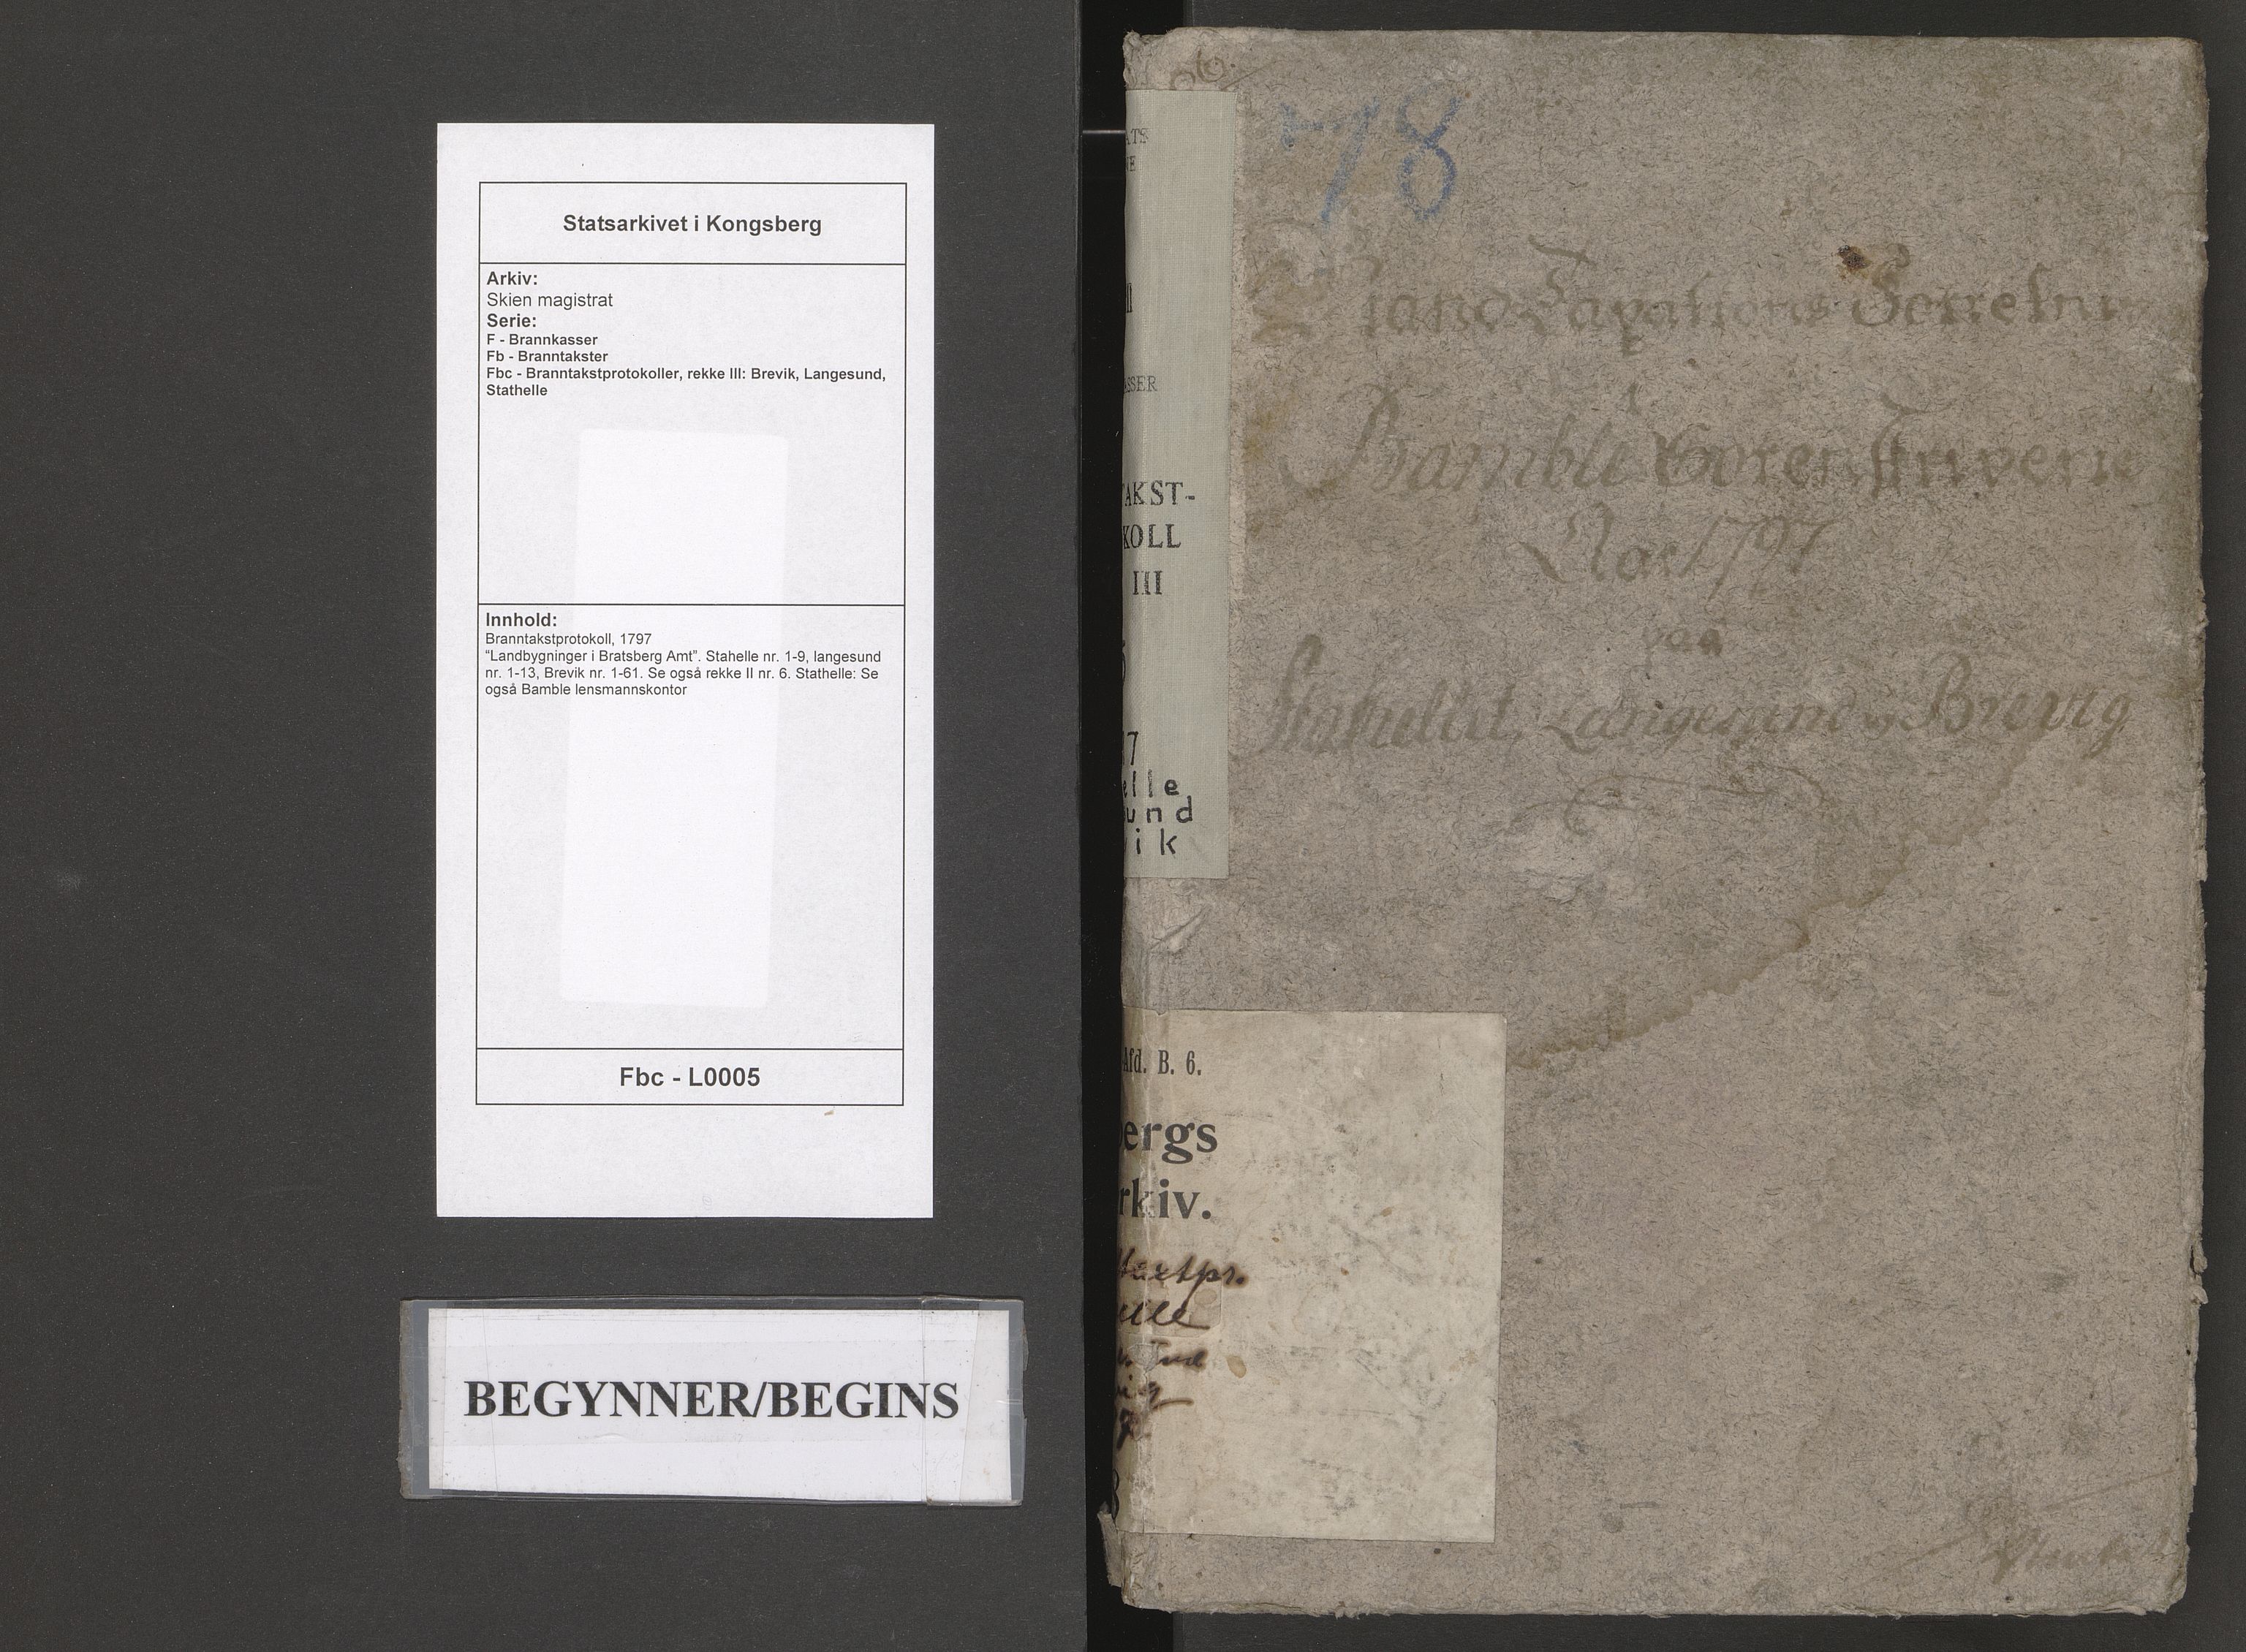 Statsarkivet i Kongsberg
Arkiv:
Skien magistrat
Serie:
F - Brannkasser
Fb - Branntakster
Fbc - Branntakstprotokoller, rekke III: Brevik, Langesund,
Stathelle
Innhold:
Branntakstprotokoll, 1797
“Landbygninger i Bratsberg Amt”. Stahelle nr. 1-9, langesund
nr. 1-13, Brevik nr. 1-61. Se også rekke II nr. 6. Stathelle: Se
også Bamble lensmannskontor
Fbc - L0005
BEGYNNER/BEGINS
78
Brand Taxations Forretning
i
Bamble Sorenskriverie
Aar 1797
paa
Stathellet, Langesund og Brevig
ATS
NE
ASSER
TAKST-
KOLL
III
7
elle
sund
ik
Afd. B. 6.
bergs
rkiv.
taxtpr.
elle
vig